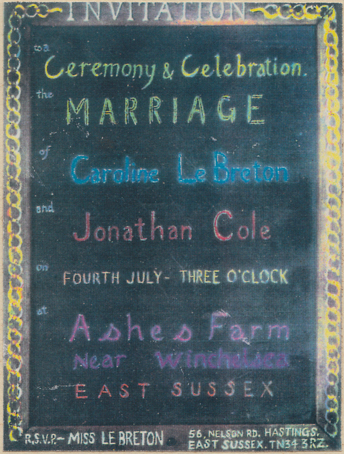 INVITATION
to a
Ceremony & Celebration.
the
MARRIAGE
of
Caroline Le Breton
and
Jonathan Cole
on
FOURTH JULY - THREE O'CLOCK
at
Ashes Farm
Near Winchelsea
EAST SUSSEX
R.S.V.P. - MISS LE BRETON
56, NELSON RD. HASTINGS.
EAST SUSSEX. TN34 3RZ.